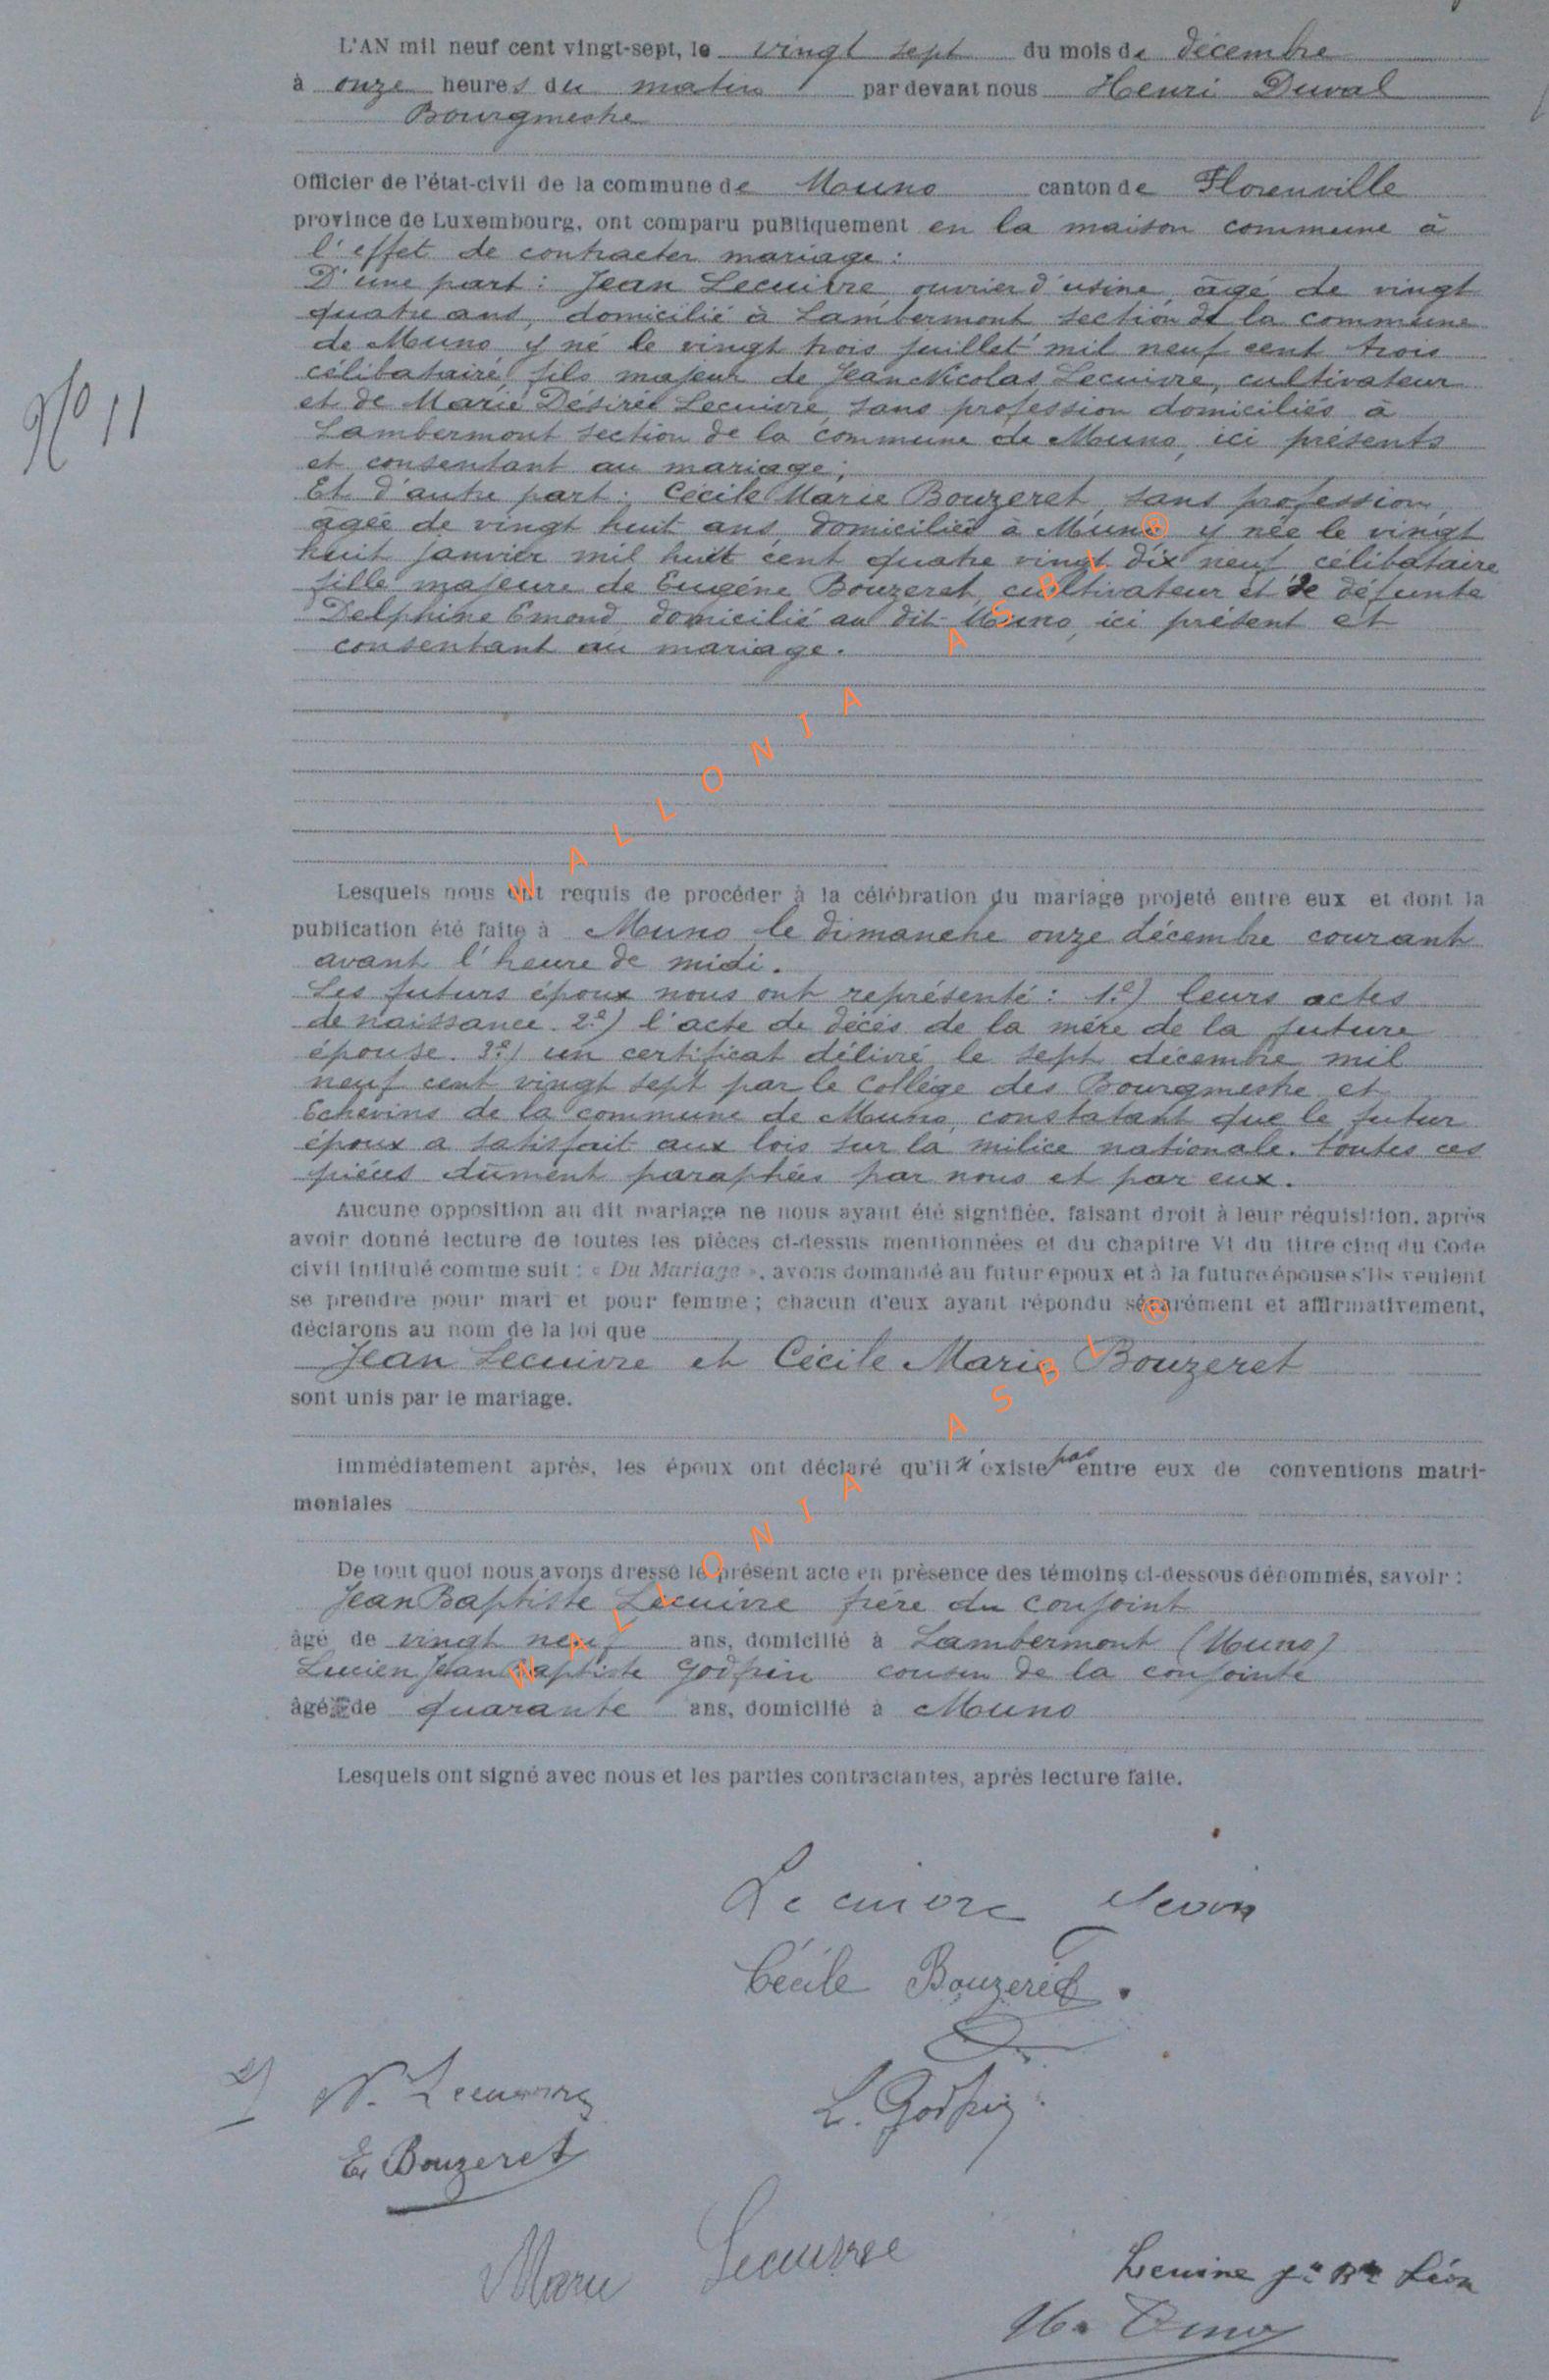 L'AN mil neuf cent vingt-sept, le vingt sept du mois de décembre
à onze heures du matin par devant nous Henri Duval
Bourgmestre
Officier de l'état-civil de la commune de Muno canton de Florenville
province de Luxembourg, ont comparu publiquement en la maison commune à
l'effet de contracter mariage :
D'une part : Jean Lecuivre, ouvrier d'usine, âgé de vingt
quatre ans, domicilié à Lambermont section de la commune
de Muno y né le vingt trois juillet mil neuf cent trois
célibataire fils majeur de Jean Nicolas Lecuivre, cultivateur
et de Marie Désirée Lecuivre, sans profession domiciliés à
Lambermont section de la commune de Muno, ici présents
et consentant au mariage;
Et d'autre part : Cécile Marie Bouzeret, sans profession,
âgée de vingt huit ans, domiciliée à Muno y née le vingt
huit janvier mil huit cent quatre vingt dix neuf, célibataire
fille majeure de Eugène Bouzeret, cultivateur et de défunte
Delphine Emond, domicilié au dit Muno, ici présent et
consentant au mariage.
WALLONIA ASBL ®
Lesquels nous ont requis de procéder à la célébration du mariage projeté entre eux et dont la
publication été faite à Muno le dimanche onze décembre courant
avant l'heure de midi.
Les futurs époux nous ont représenté : 1º) leurs actes
de naissance. 2º) l'acte de décès de la mère de la future
épouse. 3º) un certificat délivré le sept décembre mil
neuf cent vingt sept par le Collège des Bourgmestre et
Echevins de la commune de Muno, constatant que le futur
époux a satisfait aux lois sur la milice nationale. toutes ces
pièces dûment paraphées par nous et par eux.
Aucune opposition au dit mariage ne nous ayant été signifiée, faisant droit à leur réquisition, après
avoir donné lecture de toutes les pièces ci-dessus mentionnées et du chapitre VI du titre cinq du Code
civil intitulé comme suit : « Du Mariage », avons demandé au futur époux et à la future épouse s'ils veulent
se prendre pour mari et pour femme ; chacun d'eux ayant répondu séparément et affirmativement,
déclarons au nom de la loi que
Jean Lecuivre et Cécile Marie Bouzeret
sont unis par le mariage.
Immédiatement après, les époux ont déclaré qu'il n'existe pas entre eux de conventions matri-
moniales
De tout quoi nous avons dressé le présent acte en présence des témoins ci-dessous dénommés, savoir :
Jean Baptiste Lecuivre frère du conjoint
âgé de vingt neuf ans, domicilié à Lambermont (Muno)
Lucien Jean Baptiste Godfrin cousin de la conjointe
âgé de quarante ans, domicilié à Muno
WALLONIA ASBL ®
Lesquels ont signé avec nous et les parties contractantes, après lecture faite.
Nº 11
Lecuivre
Cécile Bouzeret.
N. Lecuivre
L. Godfrin
E. Bouzeret
Marie Lecuivre
Lecuivre Jn Bte Léon